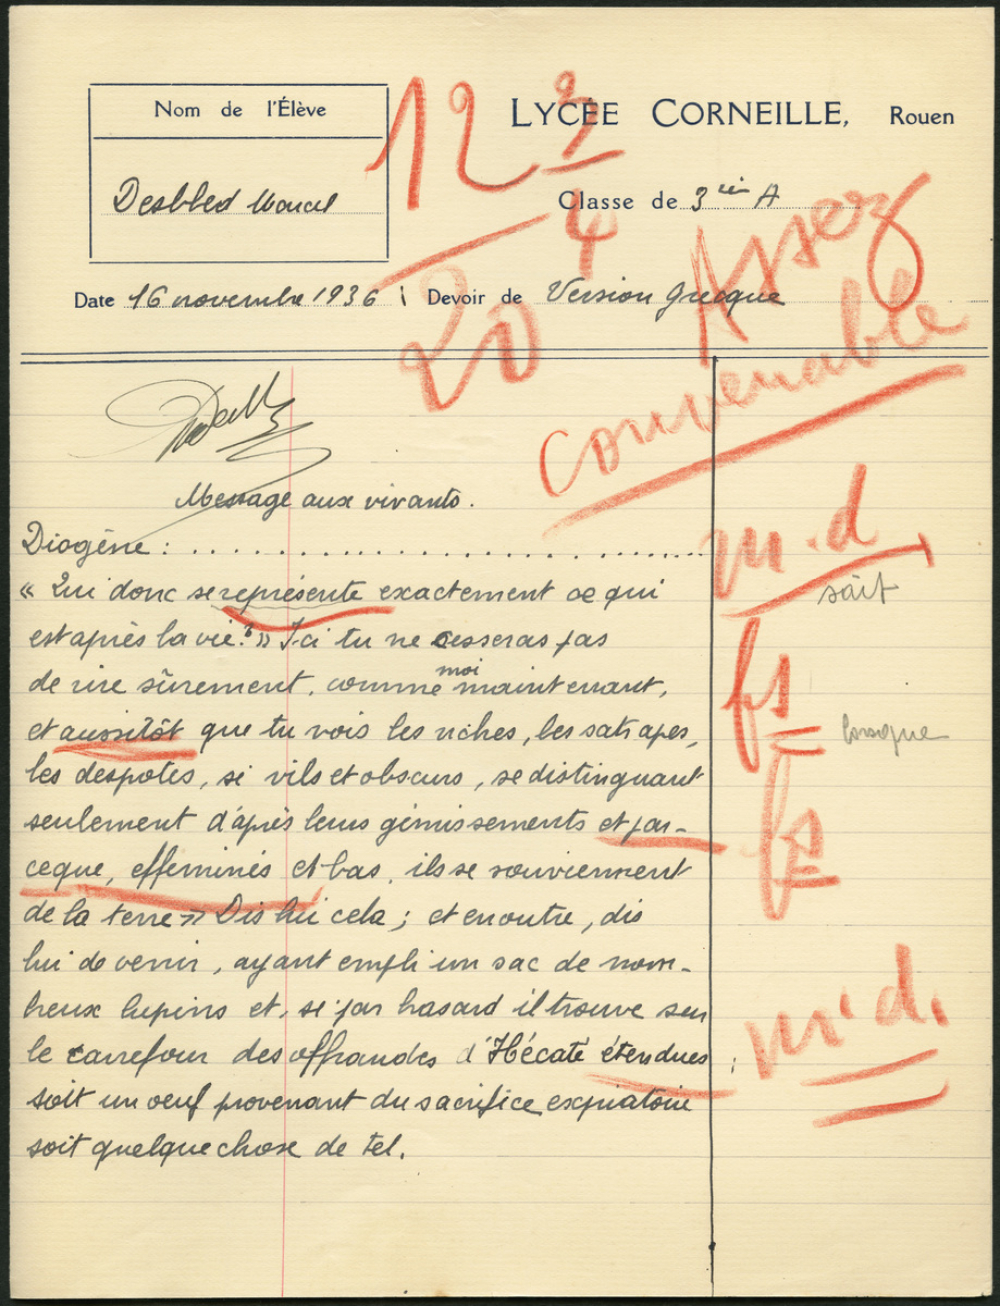 Nom de l'Élève
Desbled Marcel
12 3/4
20
LYCÉE CORNEILLE, Rouen
Classe de 3ième A
Assez
convenable
Date 16 novembre 1936 ; Devoir de Version grecque
Message aux vivants.
Diogène : ..............................
m.d
« Qui donc se représente exactement ce qui
sait
est après la vie ? » Ici tu ne cesseras pas
de rire sûrement, comme moi maintenant,
fs
et aussitôt que tu vois les riches, les satrapes,
lorsque
les despotes, si vils et obscurs, se distinguant
seulement d'après leurs gémissements et par-
fs
ceque, effeminés et bas, ils se souviennent
de la terre » Dis lui cela ; et en outre, dis
lui de venir, ayant empli un sac de nom-
breux lupins et, si par hasard il trouve sur
m.d.
le carrefour des offrandes d'Hécate étendues ;
soit un oeuf provenant du sacrifice expiatoire
soit quelque chose de tel.